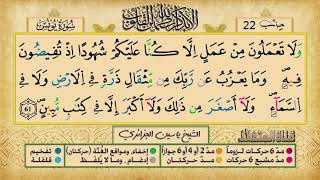 حزب 22
سُورَةُ يُونُسَ
وَلَا تَعْمَلُونَ مِنْ عَمَلٍ اِلَّا كُنَّا عَلَيْكُمْ شُهُودًا اِذْ تُفِيضُونَ
فِيهِ وَمَا يَعْزُبُ عَن رَّبِّكَ مِن مِّثْقَالِ ذَرَّةٍ فِي اِلَارْضِ وَلَا فِي
اِلسَّمَآءِ وَلَآ أَصْغَرَ مِن ذَٰلِكَ وَلَآ أَكْبَرَ إِلَّا فِي كِتَٰبٍ مُّبِينٍ 61
الشيخ ياسين الجزائري
مدّ 6 حركات لزوماً مدّ 2 أو 4 أو 6 جوازاً إخفاء ومواقع الغُنَّة (حركتان) تفخيم
مدّ مشبع 6 حركات مدّ حركتان إدغام، وما لا يُلفظ قلقلة